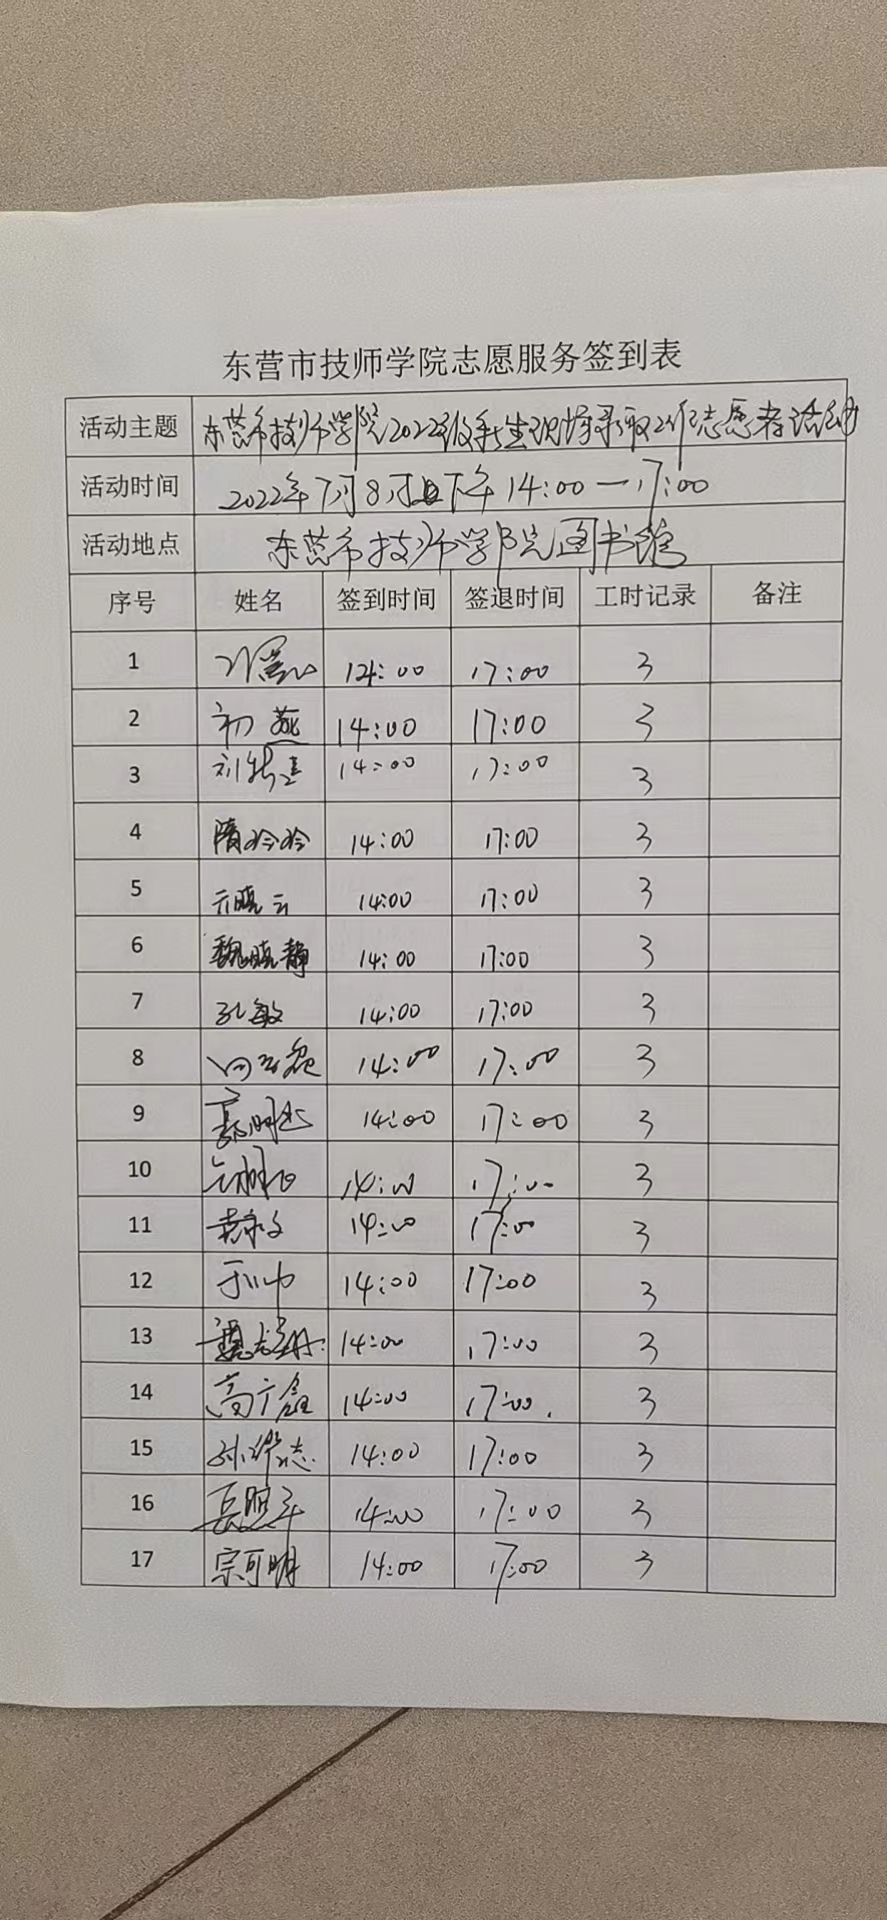 东营市技师学院志愿服务签到表
活动主题 东营市技师学院2022级新生现场录取工作志愿者活动
活动时间 2022年7月8日下午14:00—17:00
活动地点 东营市技师学院图书馆
序号 姓名 签到时间 签退时间 工时记录 备注
1 14:00 17:00 3
2 初燕 14:00 17:00 3
3 14:00 17:00 3
4 隋玲玲 14:00 17:00 3
5 亓晓云 14:00 17:00 3
6 魏晓静 14:00 17:00 3
7 孔敏 14:00 17:00 3
8 14:00 17:00 3
9 14:00 17:00 3
10 14:00 17:00 3
11 14:00 17:00 3
12 14:00 17:00 3
13 14:00 17:00 3
14 高广鑫 14:00 17:00 3
15 14:00 17:00 3
16 14:00 17:00 3
17 宗可明 14:00 17:00 3